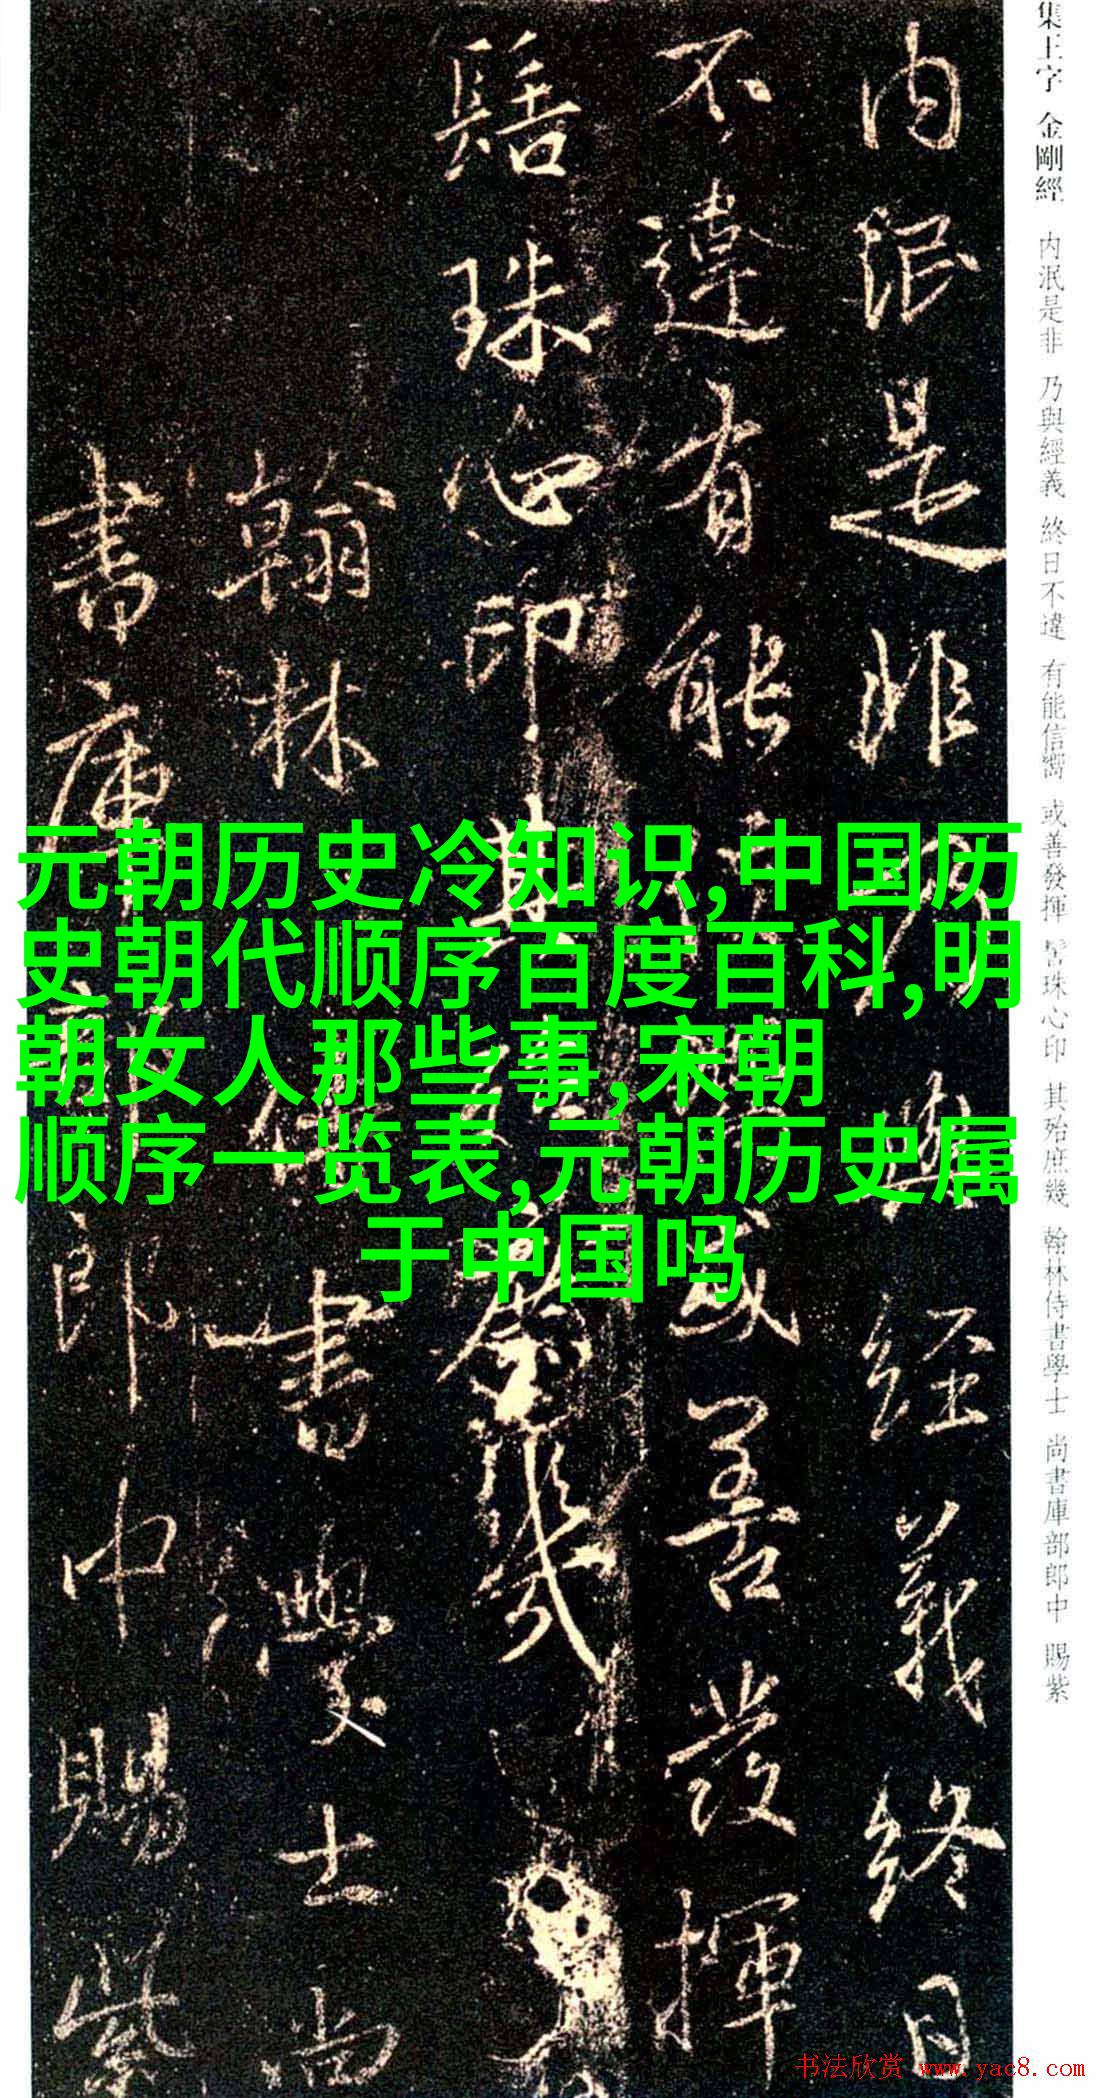 集王字 金剛經 内泯是非 乃與經義 終日不違 有能信嚮 或善發揮 髻珠心印 其殆庶幾 翰林侍書學士 尚書庫部郎中 賜紫
内泯是非乃與經義終日
不違有能信嚮或善發揮
髻珠心印其殆庶幾
翰林侍書學士尚
書庫部郎中賜紫
元朝历史冷知识,中国历
史朝代顺序百度百科,明
朝女人那些事,宋朝
顺序一览表,元朝历史属
于中国吗
书法欣赏 www.yac8.com